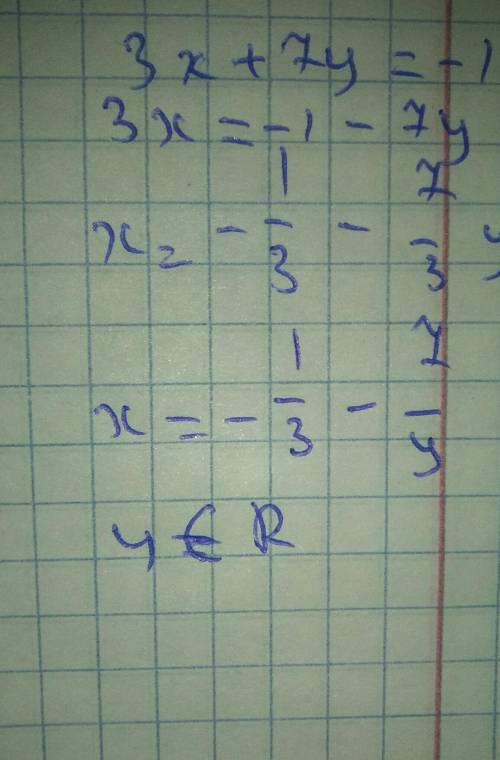 3x + 7y = -1
3x = -1 - 7y
x = - 1/3 - 7/3 y
x = - 1/3 - 7/y
y ∈ R